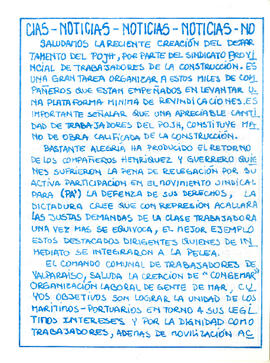 CIAS - NOTICIAS - NOTICIAS - NOTICIAS - NO
SALUDAMOS LA RECIENTE CREACIÓN DEL DEPAR
TAMENTO DEL POJH, POR PARTE DEL SINDICATO PROVI
NCIAL DE TRABAJADORES DE LA CONSTRUCCIÓN. ES
UNA GRAN TAREA ORGANIZAR A ESTOS MILES DE COM
PAÑEROS QUE ESTAN EMPEÑADOS EN LEVANTAR U
NA PLATAFORMA MINIMA DE REVINDICACIONES. ES
IMPORTANTE SEÑALAR QUE UNA APRECIABLE CANTI
DAD DE TRABAJADORES DEL POJH, CONSTITUYE MA
NO DE OBRA CALIFICADA DE LA CONSTRUCCIÓN.
BASTANTE ALEGRIA HA PRODUCIDO EL RETORNO
DE LOS COMPAÑEROS HENRIQUEZ Y GUERRERO QUE
NES SUFRIERON LA PENA DE RELEGACIÓN POR SU
ACTIVA PARTICIPACIÓN EN EL MOVIMIENTO SINDICAL
PARA (PAY) LA DEFENZA DE SUS DERECHOS, LA
DICTADURA CREE QUE CON REPRESIÓN ACALLARA
LAS JUSTAS DEMANDAS DE LA CLASE TRABAJADORA
UNA VEZ MAS SE EQUIVOCA, EL MEJOR EJEMPLO
ESTOS DESTACADOS DIRIGENTES QUIENES DE IN
MEDIATO SE INTEGRARON A LA PELEA.
EL COMANDO COMUNAL DE TRABAJADORES DE
VALPARAÍSO, SALUDA LA CREACIÓN DE "CONGEMAR"
ORGANIZACIÓN LABORAL DE GENTE DE MAR, CU
YOS OBJETIVOS SON LOGRAR LA UNIDAD DE LOS
MARITIMOS - PORTUARIOS EN TORNO A SUS LEGÍ
TIMOS INTERESES Y POR LA DIGNIDAD COMO
TRABAJADORES, ADEMAS DE MOVILIZACIÓN AC